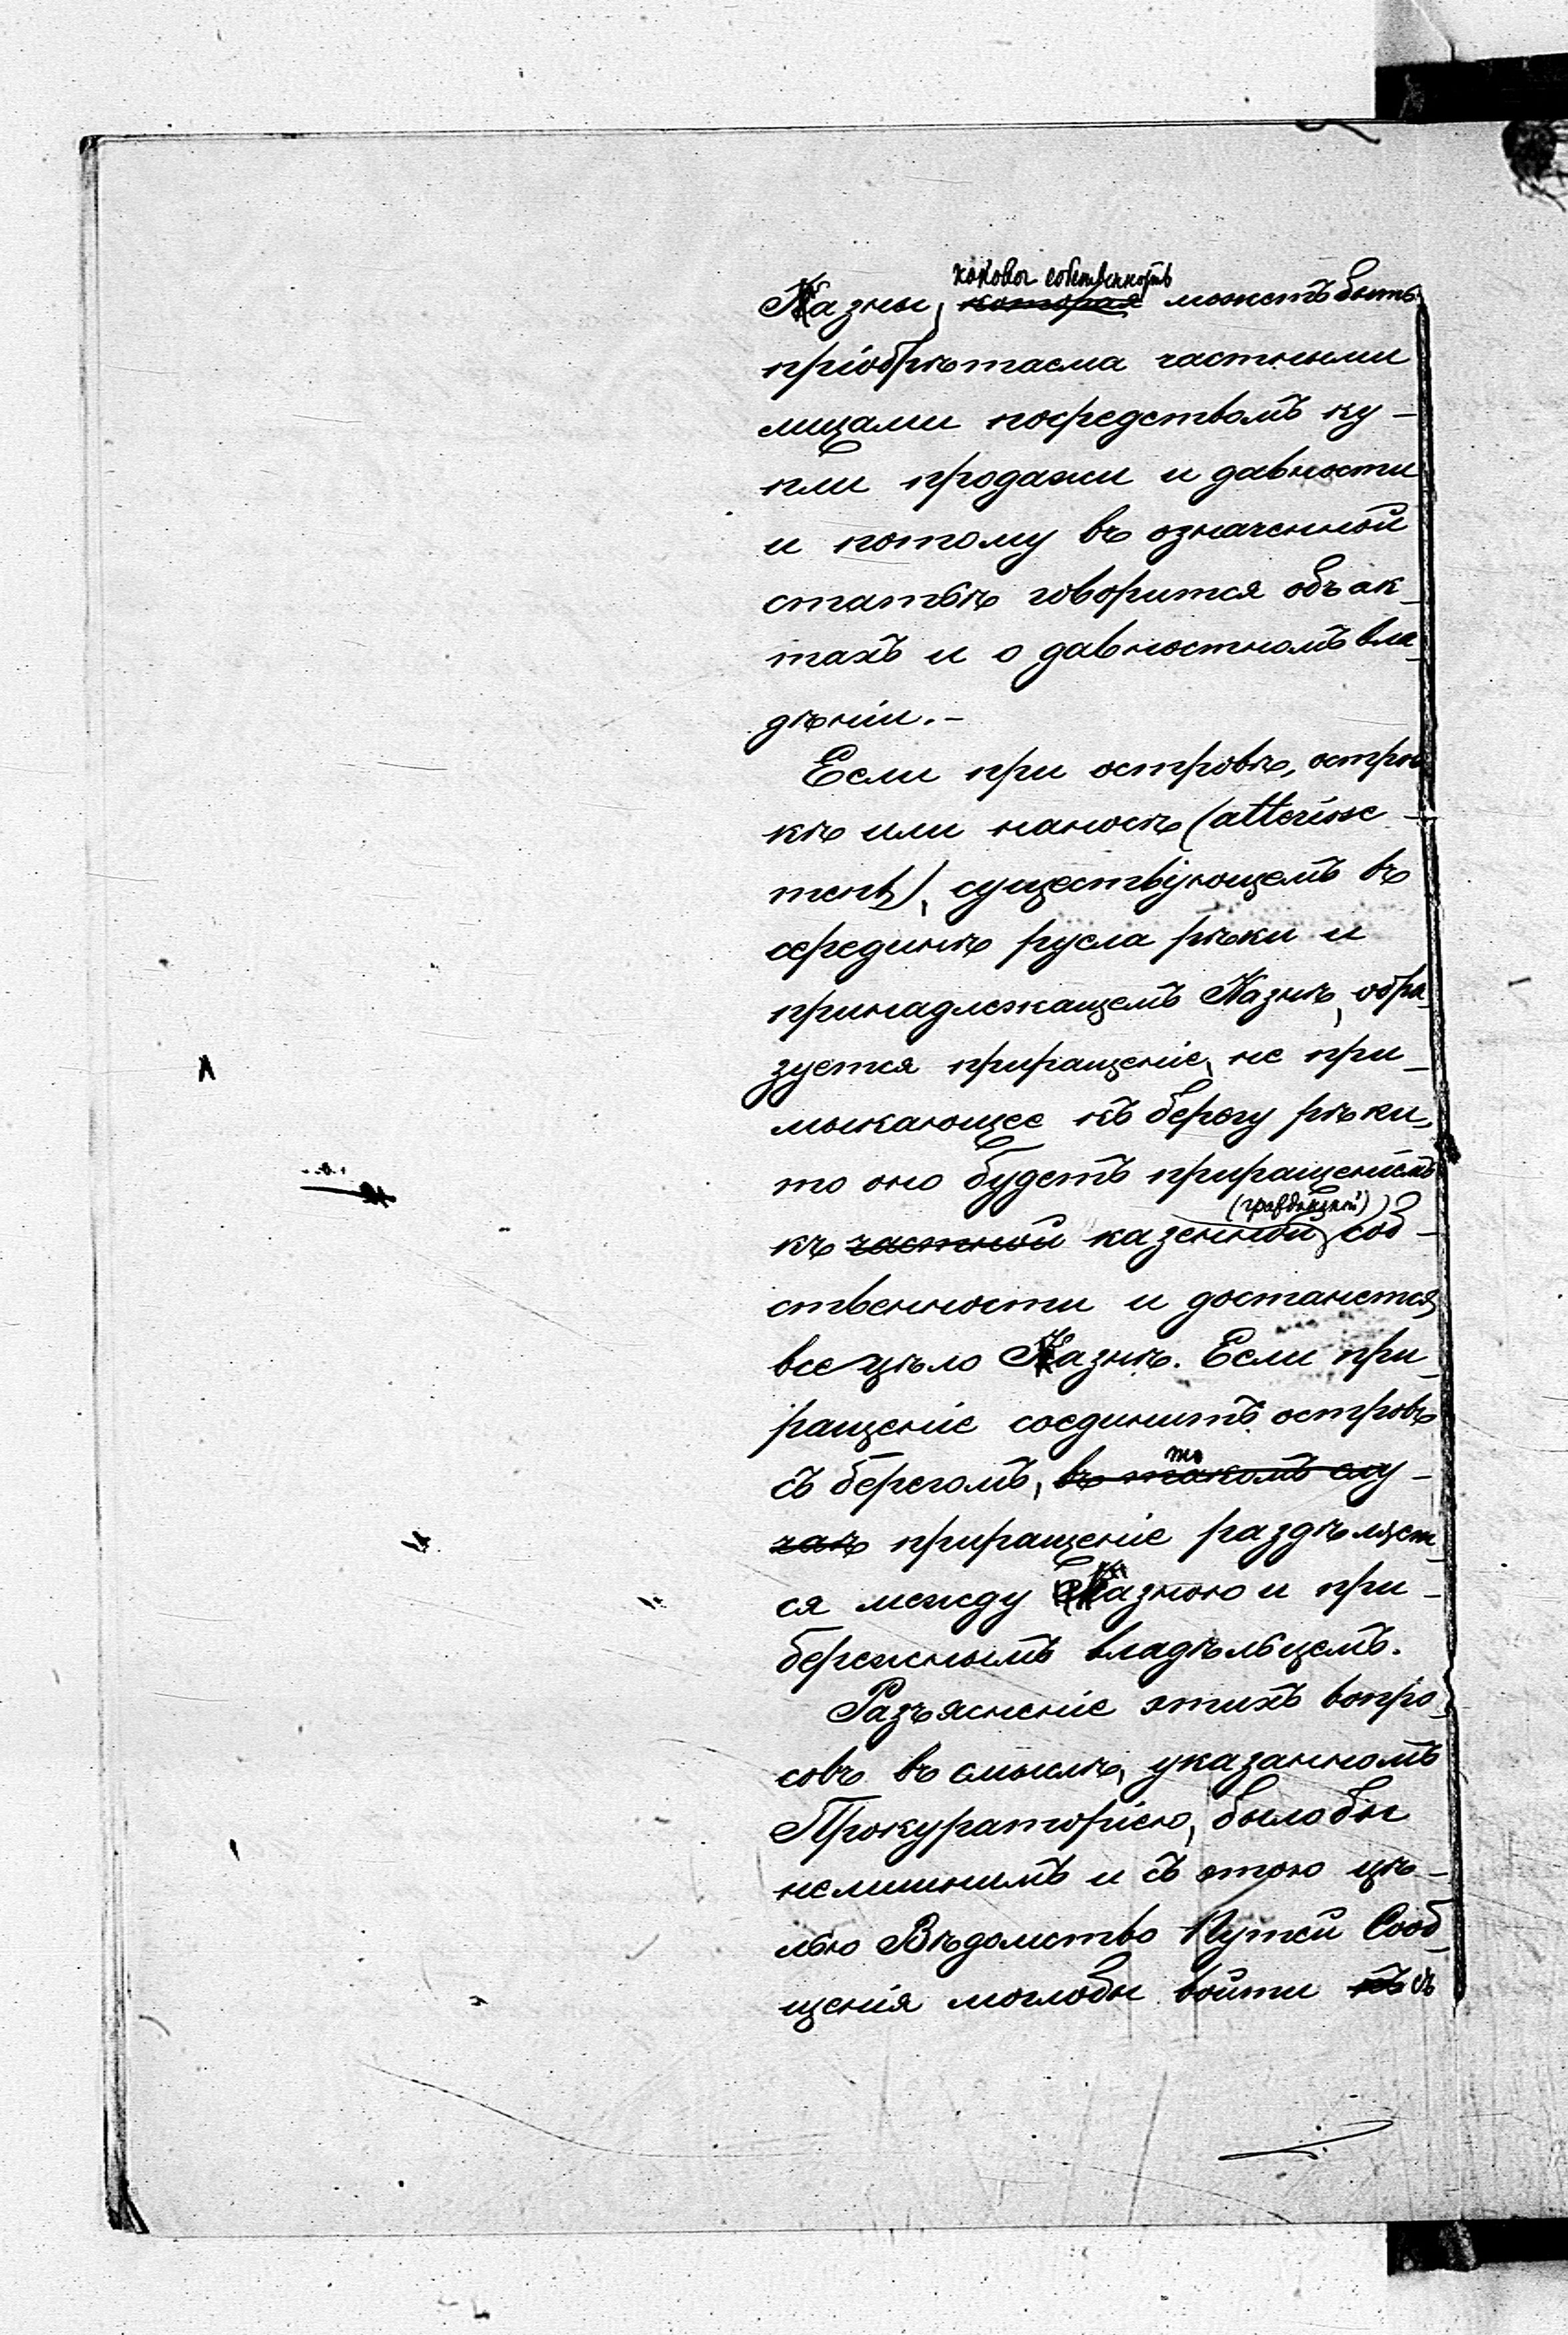 каковая собственность
Казны, которая можетъ быть
пріобрѣтаема частными
лицами посредствомъ ку-
пли продажи и давности
и потому въ означенной
статьѣ говорится объ ак-
тахъ и о давностномъ вла-
дѣніи.-
Если при островѣ, остров-
кѣ или наносѣ (atterisse-
ment), существующемъ въ
серединѣ русла рѣки и
принадлежащемъ Казнѣ, обра-
зуется приращеніе, не при-
мыкающее къ берегу рѣки,
то оно будетъ приращеніемъ
(гражданской)
къ частной казенной соб-
ственности и достанется
всецѣло Казнѣ. Если при-
ращеніе соединитъ островъ
то
съ берегомъ, въ такомъ слу-
чаѣ приращеніе раздѣляет-
ся между Казною и при-
бережнымъ владѣльцемъ.
Разъясненіе этихъ вопро-
совъ въ смыслѣ, указанномъ
Прокураторіею, было бы
нелишнимъ и съ этою цѣ-
лью Вѣдомство Путей Сооб-
щенія могло бы войти съ